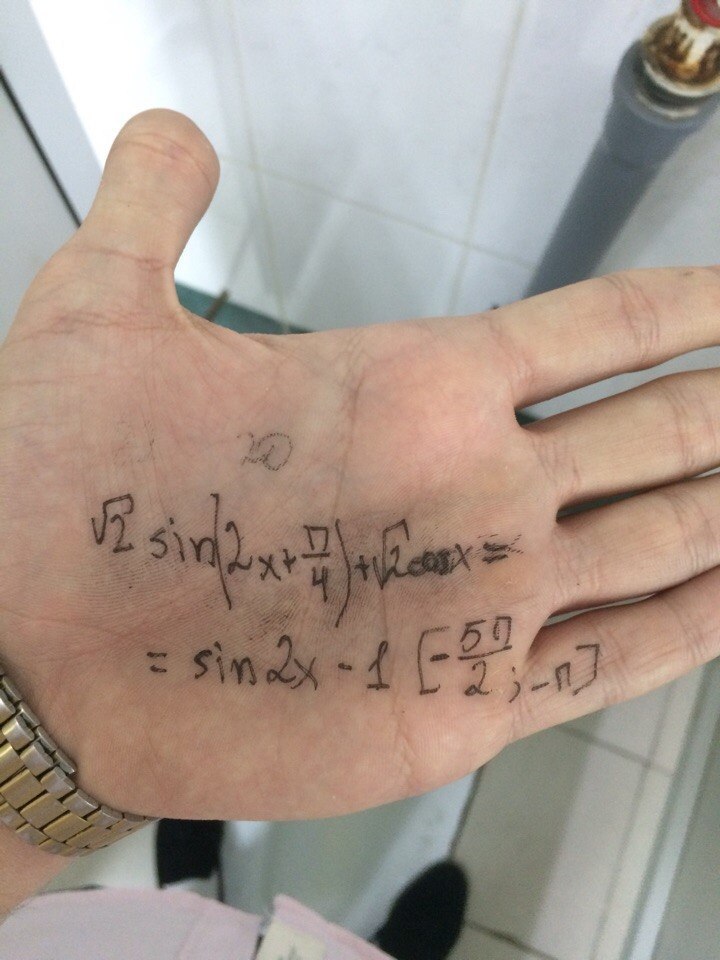 20
√2 sin(2x + π/4) + √2 cos x =
= sin 2x - 1 [-5π/2; -π]